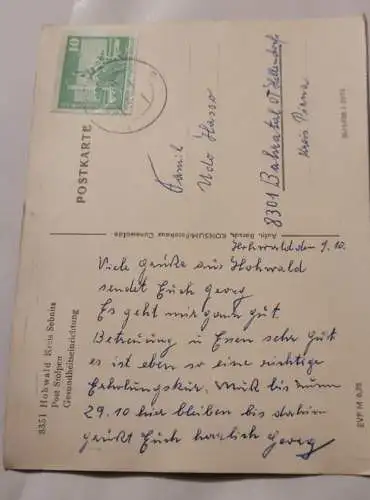 8351 Hohwald Kreis Sebnitz
Post Stolpen
Gesundheitseinrichtung
POSTKARTE
10
Familie
Udo Hasso
8301 Bahratal OT Hellendorf
Kreis Pirna
Hohwald den 9.10.
Viele Grüße aus Hohwald
sendet Euch Georg
Es geht mir ganz gut
Betreuung u Essen sehr gut
es ist eben so eine richtige
Erholungskur. Muß bis zum
29.10 hier bleiben bis dahin
grüßt Euch herzlich Georg
EVP M 0,20